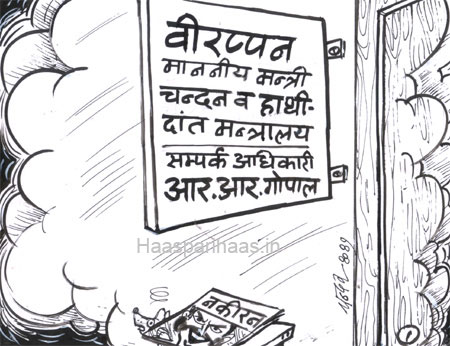 वीरप्पन
माननीय मन्त्री
चन्दन व हाथी-
दांत मन्त्रालय
सम्पर्क अधिकारी
आर.आर.गोपाल
Haasparihaas.in
नकीरन